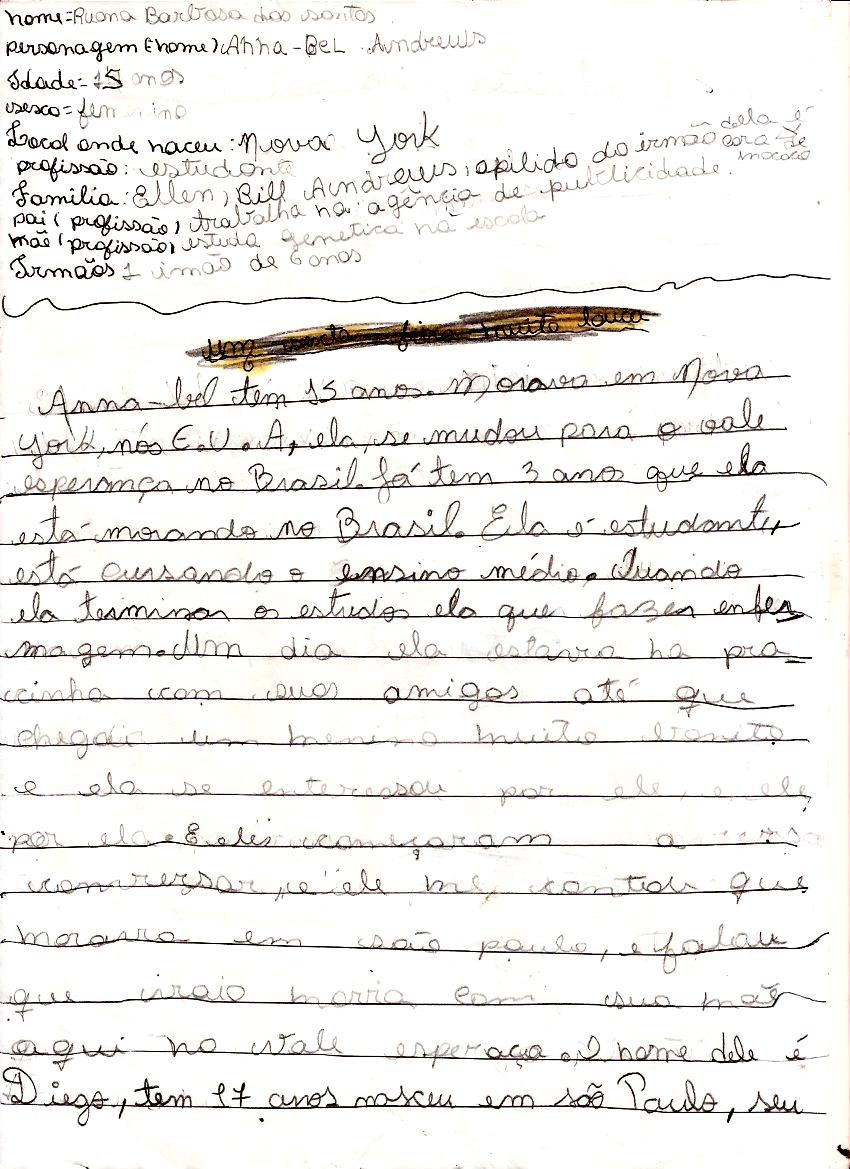 nome=Ruana Barbosa dos santos
personagem (nome): Anna-BeL Andrews
Idade=15 anos
sesco=feminino
Local onde naceu: Nova York
profissão: estudante
Familia: Ellen, Bill Aindrews, apilido do irmão dela é cara de mococo
pai (profissão) trabalha na agência de publicidade.
mãe (profissão) estuda genetica na escola
Irmãos 1 imão de 6 anos
Um sexta-feira muito louca
Anna-bel tem 15 anos. Morava em Nova
York, nós E.U.A, ela, se mudou para o vale
esperança no Brasil. Já tem 3 anos que ela
está morando no Brasil. Ela é estudante,
está cursando o ensino médio. Quando
ela terminar os estudos ela que fazer enfer
magem. Um dia ela estava na pra-
cinha com suas amigas até que
chegou um menino muito bonito
e ela se enteressou por ele, e ele
por ela. E eles começaram a
conversar, e ele me, contou que
morava em são paulo, e falou
que veio morra com sua mãe
aqui no Vale esperaça. O nome dele é
Diego, tem 17 anos nasceu em são Paulo, seu